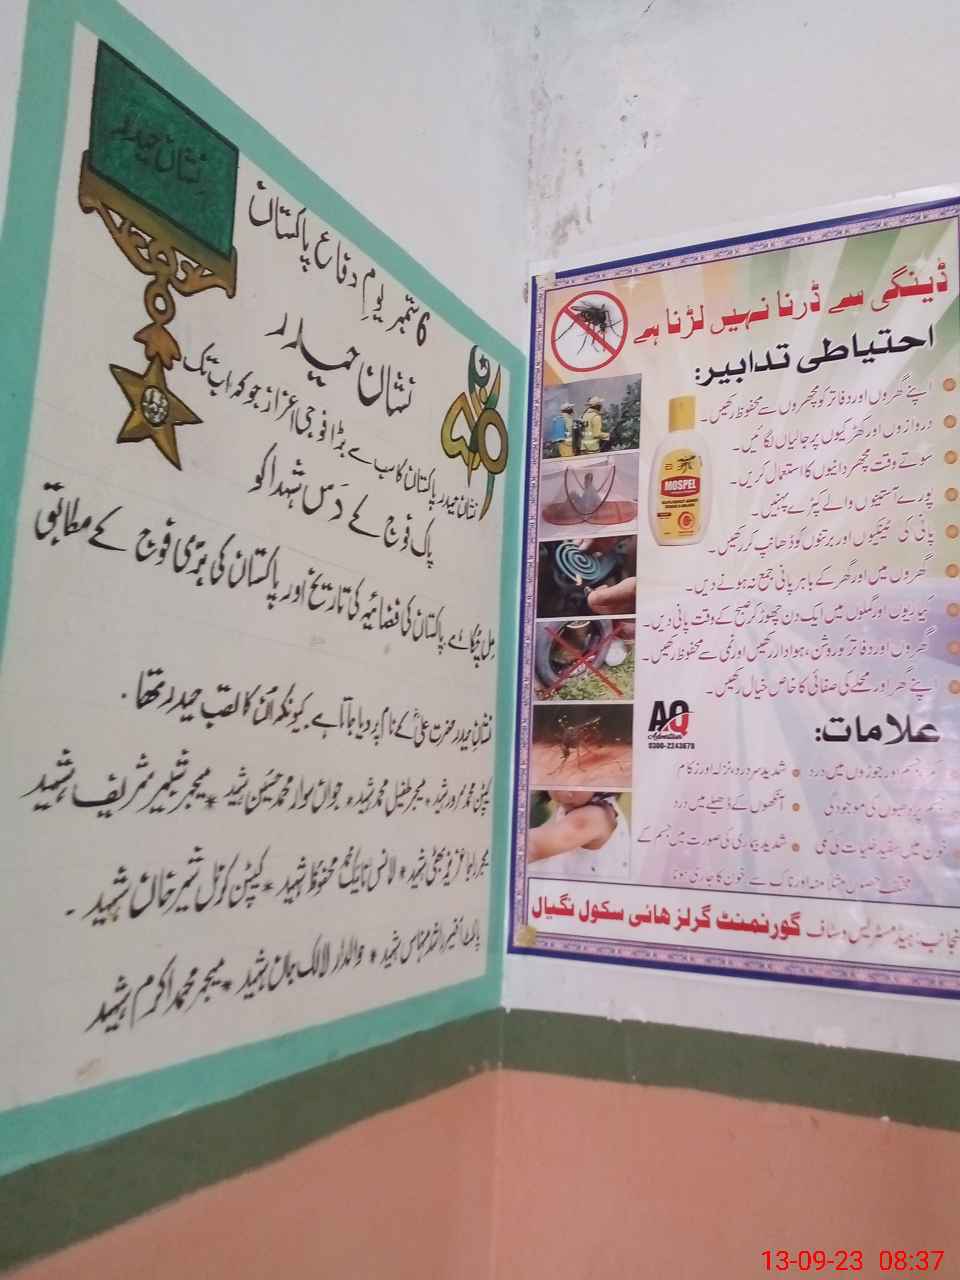 نشان حیدر
6 ستمبر یومِ دفاع پاکستان
نشان حیدر
نشان حیدر پاکستان کا سب سے بڑا فوجی اعزاز جو کہ اب تک
پاک فوج کے دَس شہدا کو
مِل چکا ہے پاکستان کی فضائیہ کی تاریخ اور پاکستان کی بَرّی فوج کے مطابق
نشانِ حیدر حضرت علیؓ کے نام پر دیا جاتا ہے۔ کیونکہ اُن کا لقب حیدر تھا۔
کیپٹن محمد سرور شہید * میجر طفیل محمد شہید * جوان سوار محمد حسین شہید * میجر شبیر شریف شہید
میجر راجا عزیز بھٹی شہید * لانس نائیک محمد محفوظ شہید * کیپٹن کرنل شیر خان شہید ۔
پائلٹ آفیسر راشد منہاس شہید * حوالدار لالک جان شہید * میجر محمد اکرم شہید
ڈینگی سے ڈرنا نہیں لڑنا ہے
احتیاطی تدابیر:
اپنے گھروں اور دفاتر کو مچھروں سے محفوظ رکھیں۔
دروازوں اور کھڑکیوں پر جالیاں لگائیں۔
سوتے وقت مچھر دانیوں کا استعمال کریں۔
پورے آستینوں والے کپڑے پہنیں۔
پانی کی ٹینکیوں اور برتنوں کو ڈھانپ کر رکھیں۔
گھروں میں اور گھر کے باہر پانی جمع نہ ہونے دیں۔
کیاریوں اور گملوں میں ایک دن چھوڑ کر صبح کے وقت پانی دیں۔
گھروں اور دفاتر کو روشن، ہوادار رکھیں اور نمی سے محفوظ رکھیں۔
اپنے گھر اور محلے کی صفائی کا خاص خیال رکھیں۔
MOSPEL
AQ
Advertiser
0300-2243678
علامات:
جسم اور جوڑوں میں درد
شدید سر درد، نزلہ اور زکام
جسم پر دھبوں کی موجودگی
آنکھوں کے ڈھیلے میں درد
خون میں سفید خلیات کی کمی
شدید بیماری کی صورت میں جسم کے
مختلف حصوں مثلاً منہ اور ناک سے خون کا جاری ہونا
منجانب: ہیڈ مسٹریس و سٹاف گورنمنٹ گرلز ھائی سکول نگیال
13-09-23 08:37